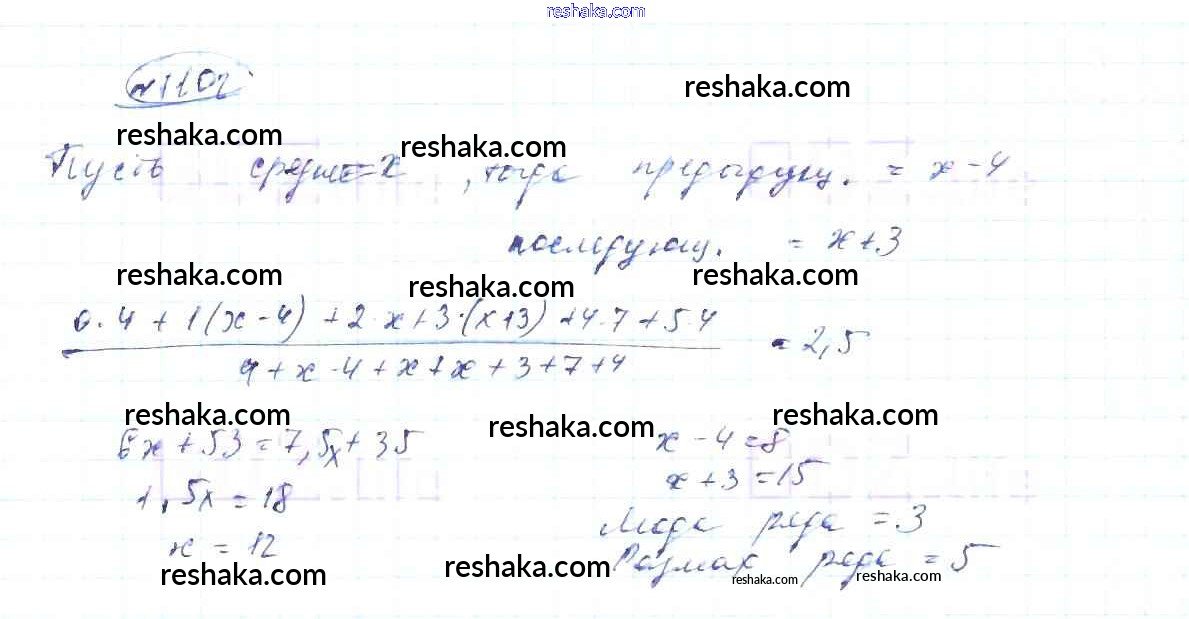 reshaka.com
№1102
reshaka.com
reshaka.com reshaka.com
Пусть средне=x, тогда предыдущ. = x-4
последующ. = x+3
reshaka.com reshaka.com reshaka.com
0·4 + 1(x-4) + 2·x + 3·(x+3) + 4·7 + 5·4
4 + x - 4 + x + x + 3 + 7 + 4 = 2,5
reshaka.com reshaka.com reshaka.com
6x + 53 = 7,5x + 35 x - 4 = 8
1,5x = 18 x + 3 = 15
x = 12 Мода ряда = 3
Размах ряда = 5
reshaka.com reshaka.com reshaka.com reshaka.com